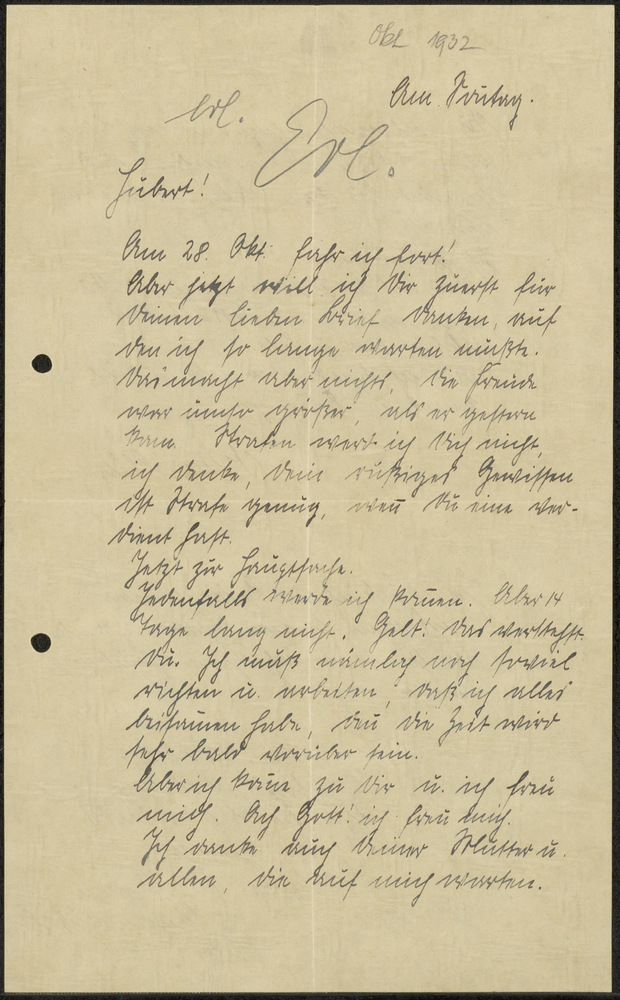 Okt 1932
Am Sontag.
erl.
Erl.
Hubert!
Am 28. Okt. fahr ich fort!
Aber jetzt will ich Dir zuerst für
Deinen lieben Brief danken, auf
den ich so lange warten mußte.
Das macht aber nichts, die Freude
war umso größer, als er gestern
kam. Strafen werd ich Dich nicht,
ich denke, Dein Gewissen
ist Strafe genug, wen̄ Du eine ver-
dient hast.
Jetzt zur Hauptsache.
Jedenfalls werde ich kom̄en. Aber 14
Tage lang nicht. Gelt! Das verstehst
Du. Ich muß nämlich noch soviel
richten u. arbeiten, daß ich alles
beisam̄en habe, den̄ die Zeit wird
sehr bald vorüber sein.
Aber ich kom̄e zu Dir u. ich freu
mich. Ach Gott! ich freu mich.
Ich danke auch Deiner Mutter u.
allen, die auf mich warten.